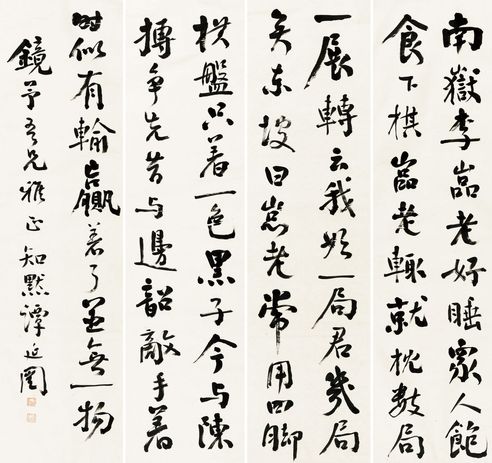 南嶽李嵓老好睡眾人飽
食下棋嵓老輒就枕數局
一展轉云我始一局君幾局
矣東坡曰嵓老常用四脚
棋盤只着一色黑子今与陳
摶爭先昔与邊韶敵手着
時似有輸贏着了並無一物
鏡予吾兄雅正 知默譚延闓